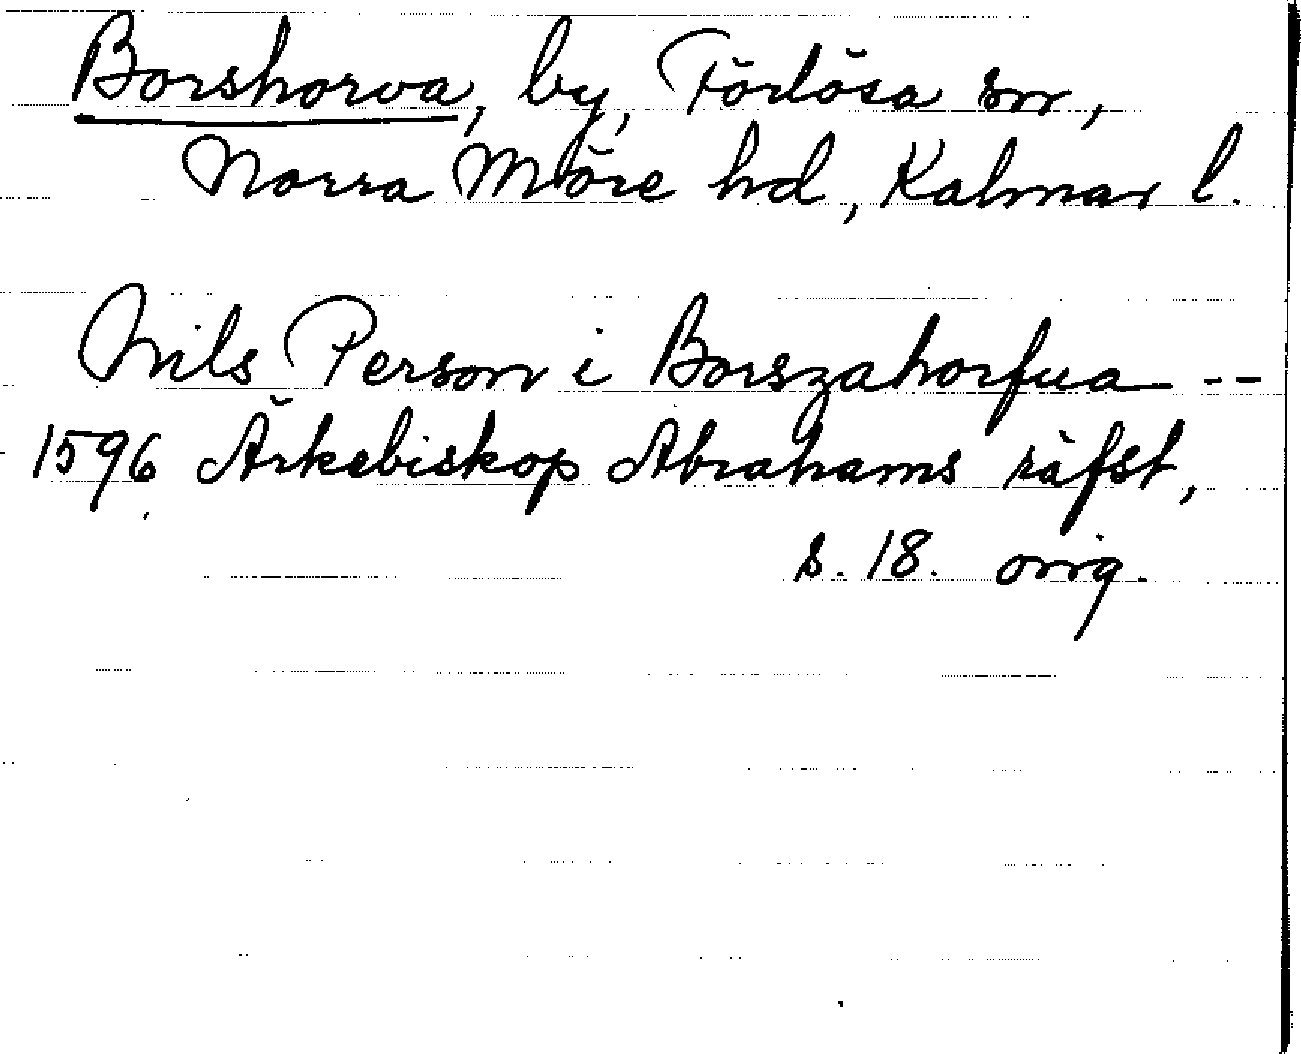 Borshorva, by, Förlösa sn,
Norra Möre hd, Kalmar l.
Nils Person i Borszahorfua --
1596 Ärkebiskop Abrahams räfst,
s. 18. orig.